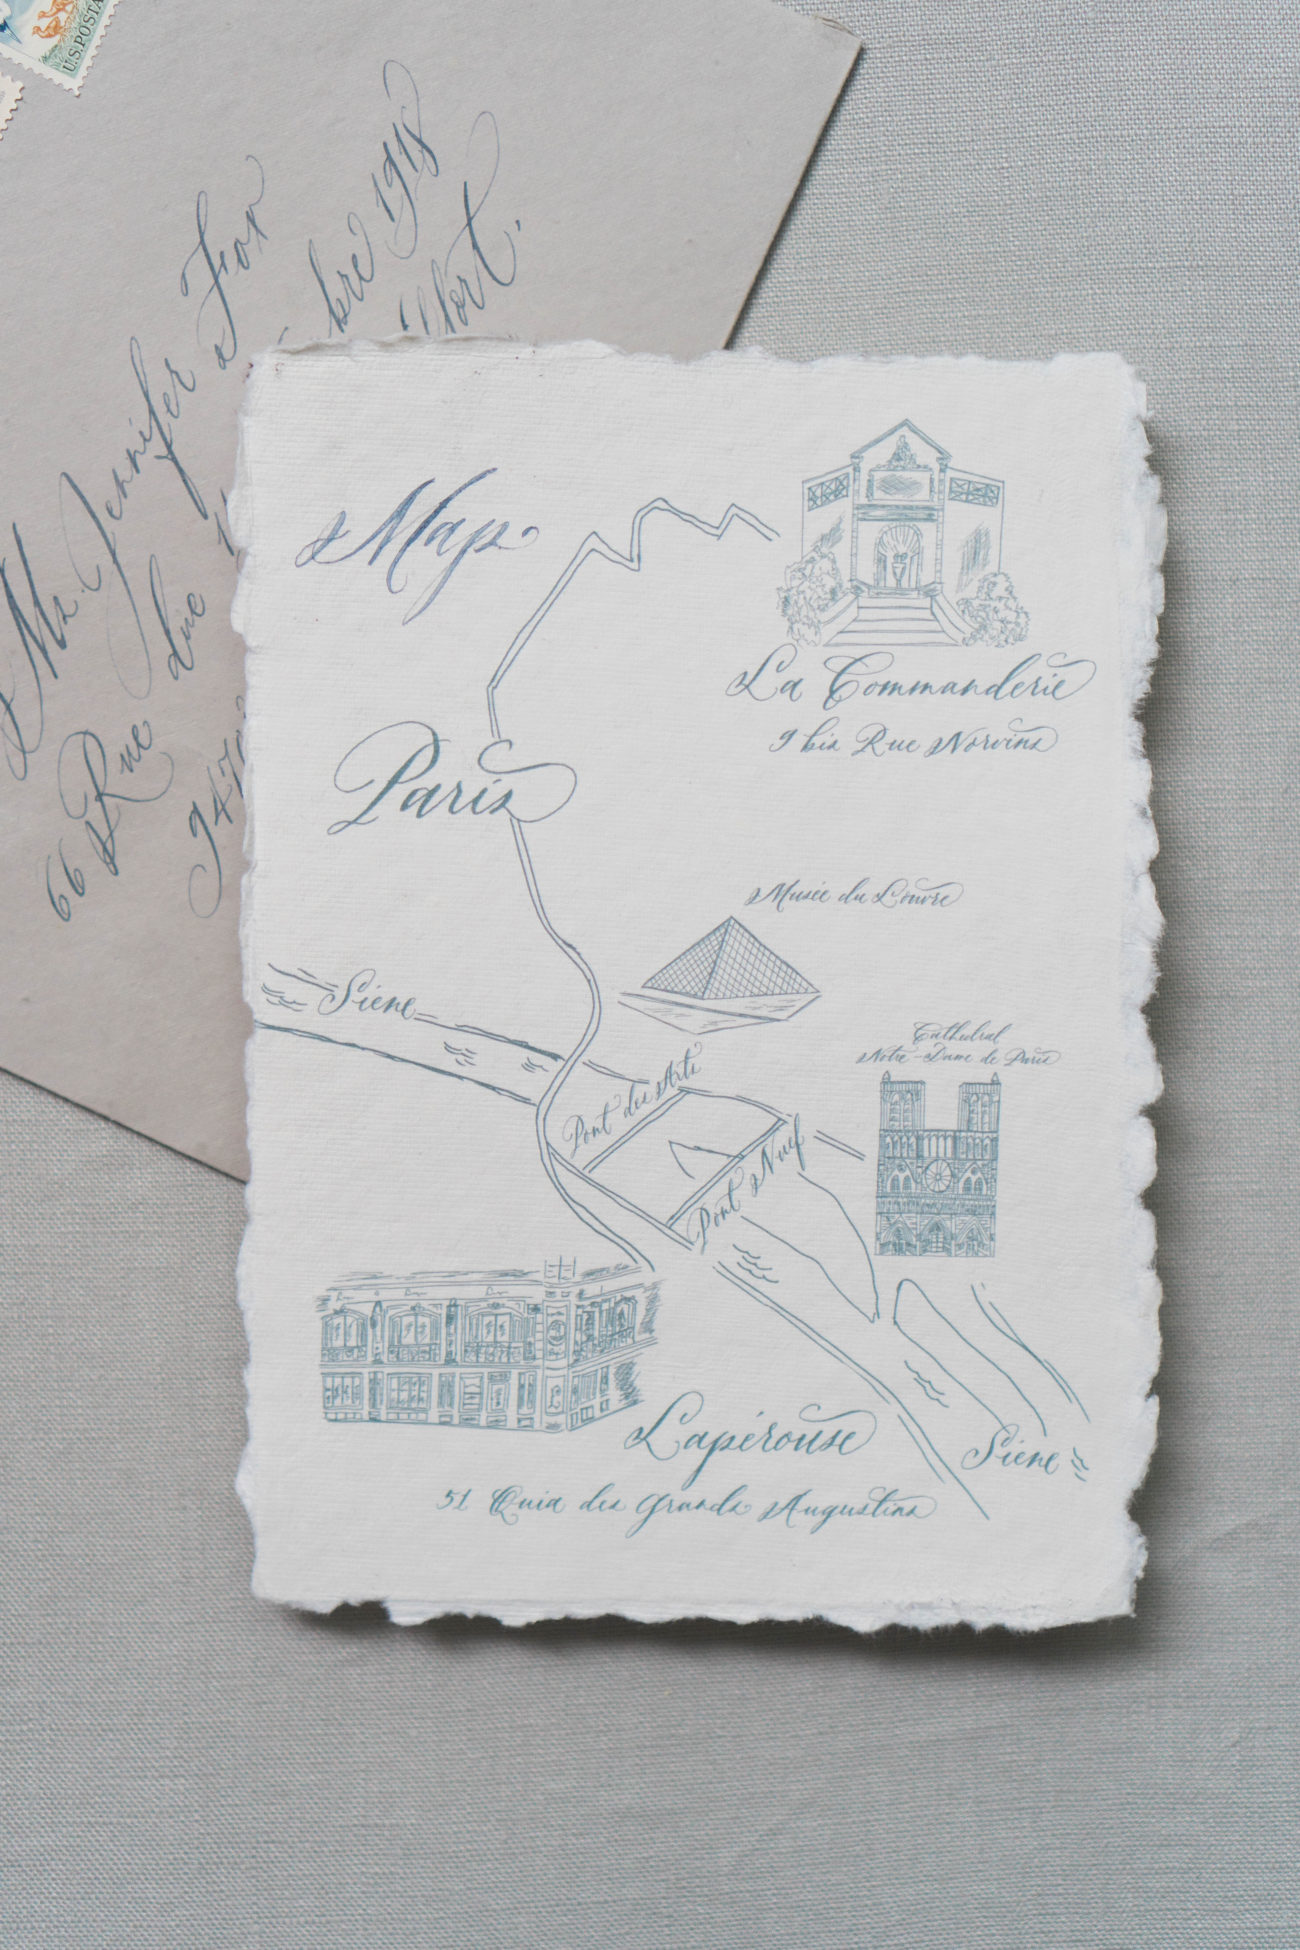 U.S. POSTA
Ms. Jennifer Fox
66 Rue du
bre 1918
9470
fort.
Map
La Commanderie
9 bis Rue Norvins
Paris
Musée du Louvre
Siene
Cathedral
Notre-Dame de Paris
Pont des Arts
Pont Nuef
Lapérouse
Siene
51 Quia des Grands Augustins